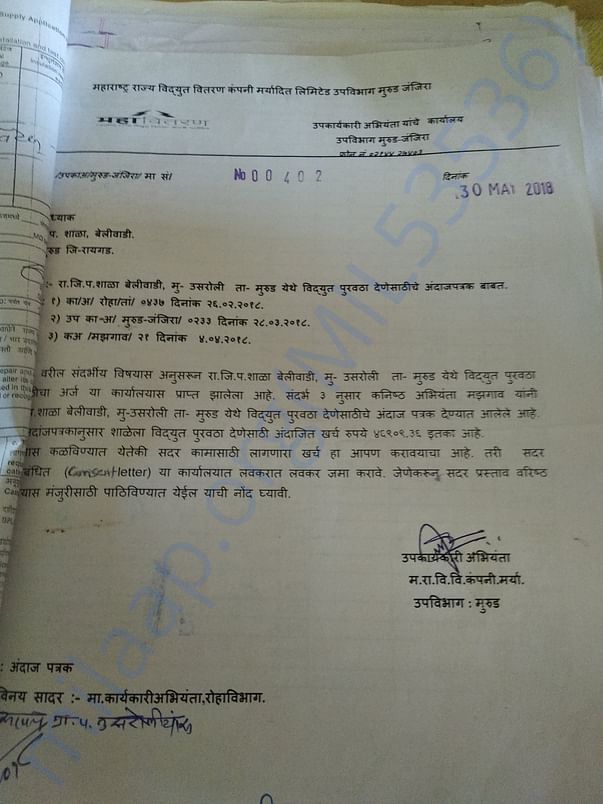 Supply Applicatio
महाराष्ट्र राज्य विद्युत वितरण कंपनी मर्यादित लिमिटेड उपविभाग मुरुड जंजिरा
महावितरण
उपकार्यकारी अभियंता यांचे कार्यालय
उपविभाग मुरुड-जंजिरा
/उपकाअ/मुरुड-जंजिरा/ मा सं/ No 00402 दिनांक
30 MAY 2018
ध्याक
प. शाळा, बेलीवाडी.
रुड जि-रायगड.
:- रा.जि.प.शाळा बेलीवाडी, मु- उसरोली ता- मुरुड येथे विद्युत पुरवठा देणेसाठीचे अंदाजपत्रक बाबत.
१) का/अ/ रोहा/तां/ ०४३७ दिनांक २६.०२.२०१८.
२) उप का-अ/ मुरुड-जंजिरा/ ०२३३ दिनांक २८.०३.२०१८.
३) कअ /मझगाव/ २१ दिनांक ४.०४.२०१८.
वरील संदर्भीय विषयास अनुसरून रा.जि.प.शाळा बेलीवाडी, मु- उसरोली ता- मुरुड येथे विद्युत पुरवठा
ठीचा अर्ज या कार्यालयास प्राप्त झालेला आहे. संदर्भ ३ नुसार कनिष्ठ अभियंता मझगाव यांनी
प.शाळा बेलीवाडी, मु-उसरोली ता- मुरुड येथे विद्युत पुरवठा देणेसाठीचे अंदाज पत्रक देण्यात आलेले आहे.
अंदाजपत्रकानुसार शाळेला विद्युत पुरवठा देणेसाठी अंदाजित खर्च रुपये ४६९०९.३६ इतका आहे.
यास कळविण्यात येतेकी सदर कामासाठी लागणारा खर्च हा आपण करावयाचा आहे. तरी सदर
बंधित (Consent letter) या कार्यालयात लवकरात लवकर जमा करावे. जेणेकरून सदर प्रस्ताव वरिष्ठ
यास मंजुरीसाठी पाठिविण्यात येईल याची नोंद घ्यावी.
उपकार्यकारी अभियंता
म.रा.वि.वि.कंपनी.मर्या.
उपविभाग : मुरुड
: अंदाज पत्रक
विनय सादर :- मा.कार्यकारीअभियंता,रोहाविभाग.
ग्रा.प.
milaap.org/MIL535361